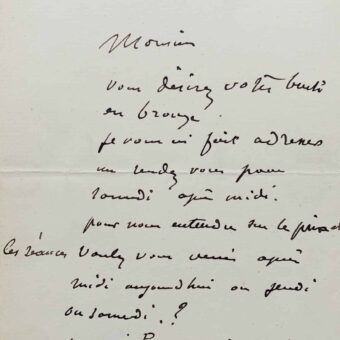 Monsieur
vous désirez votre buste
en bronze.
Je vous ai fait adresser
un rendez vous pour
samedi après midi.
pour nous entendre sur le prix et
les séances Voulez vous venir après
midi aujourdhui ou jeudi
ou samedi.?